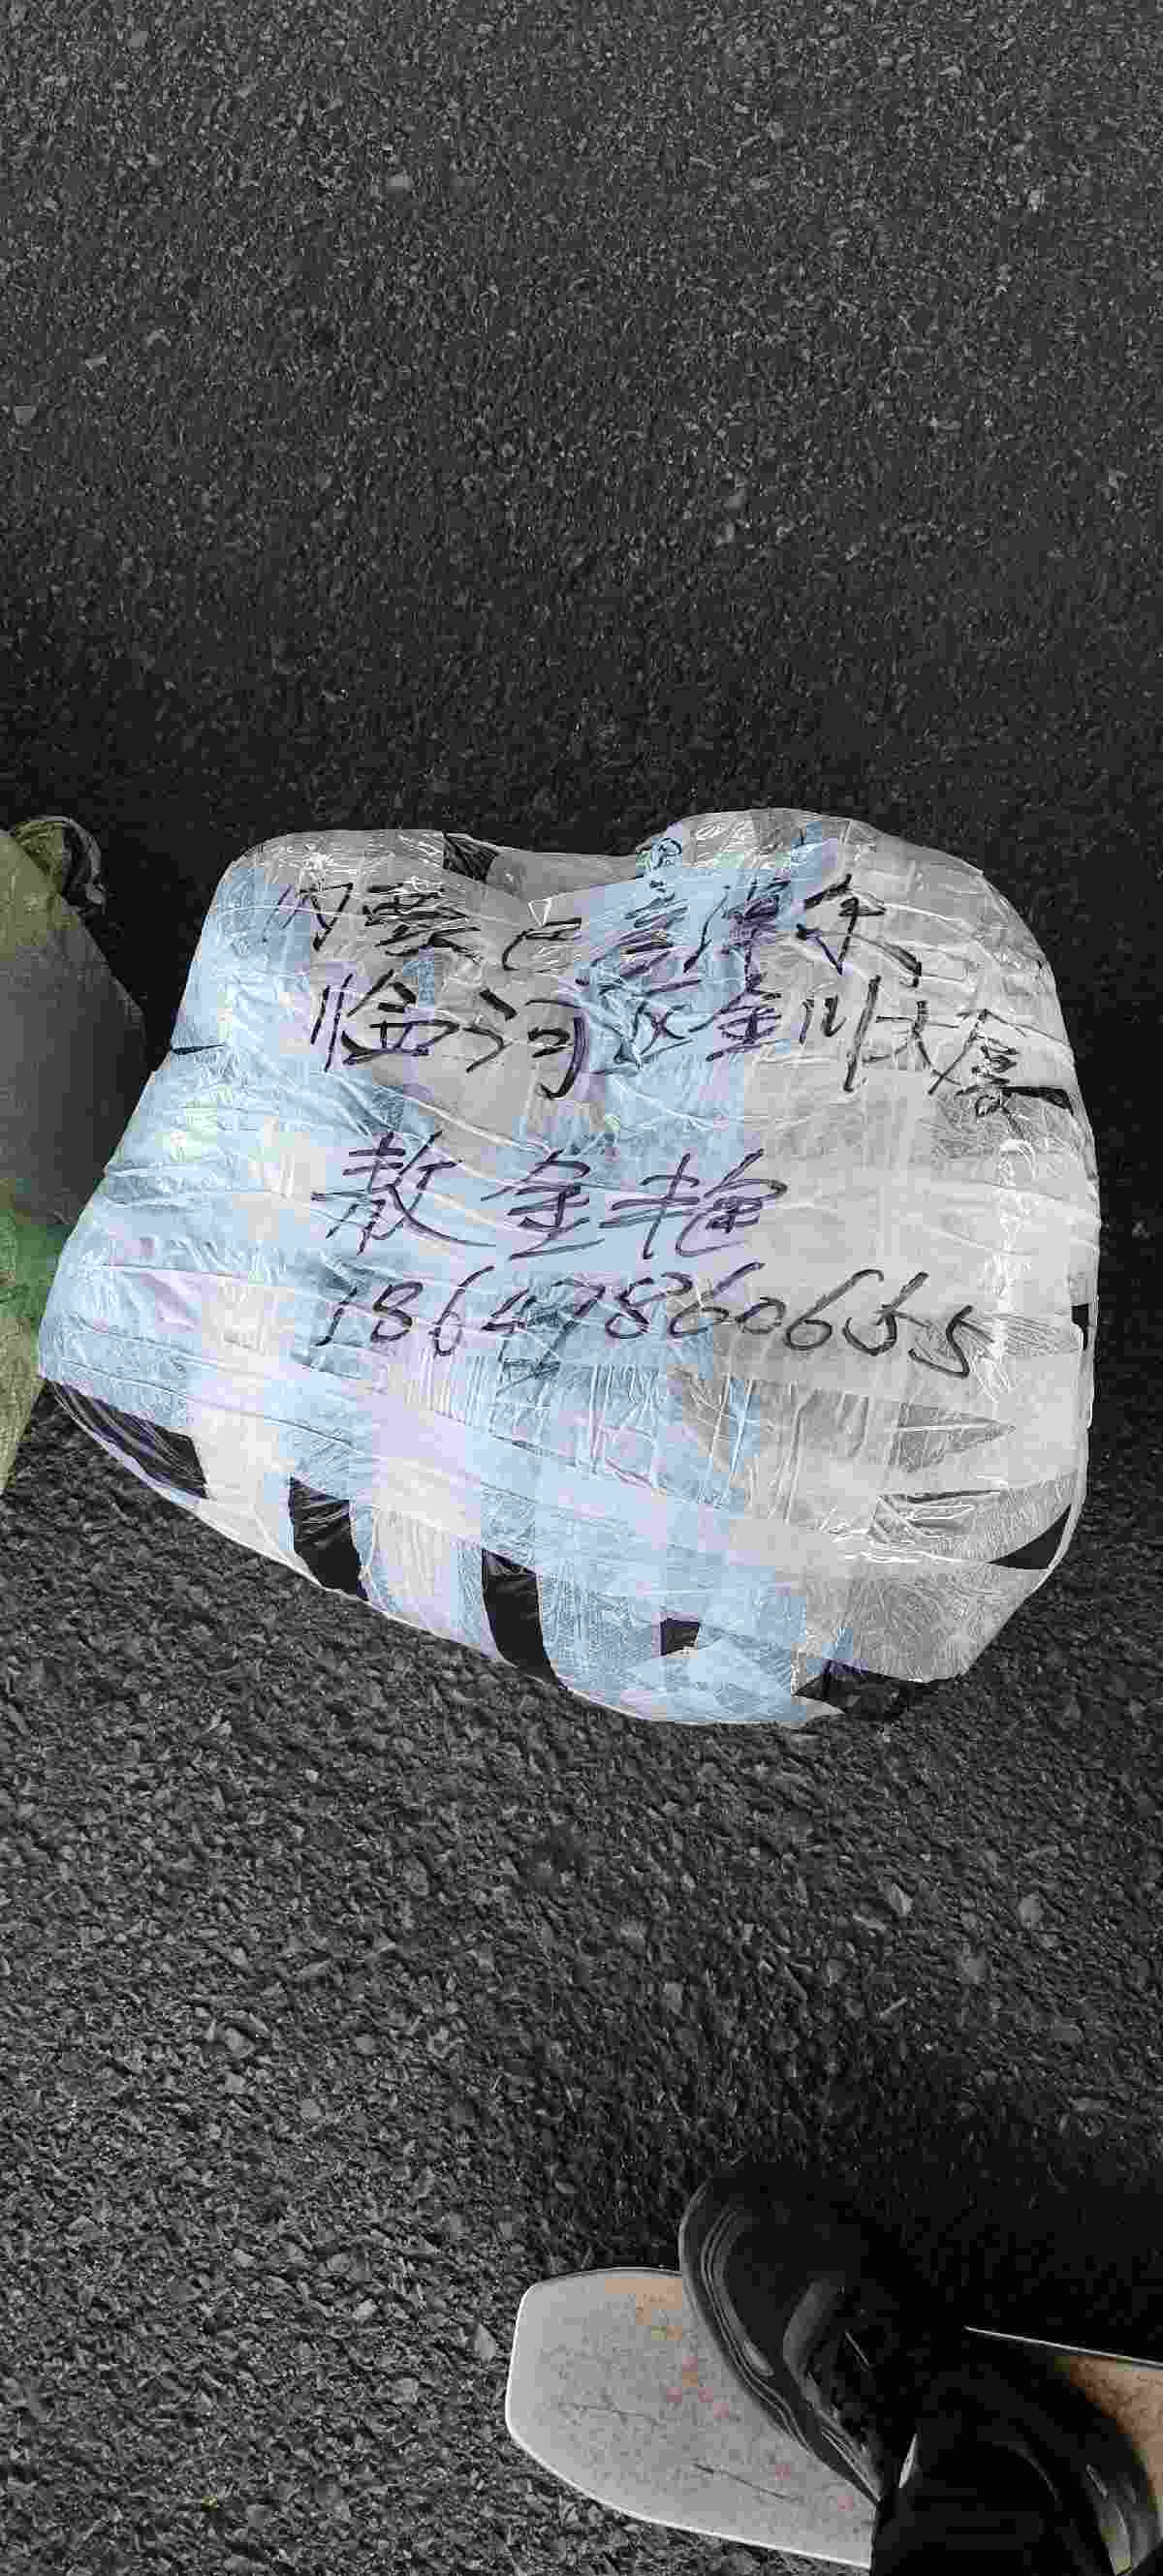 内蒙巴彦淖尔
临河区金川大厦
敖金艳
18647860655